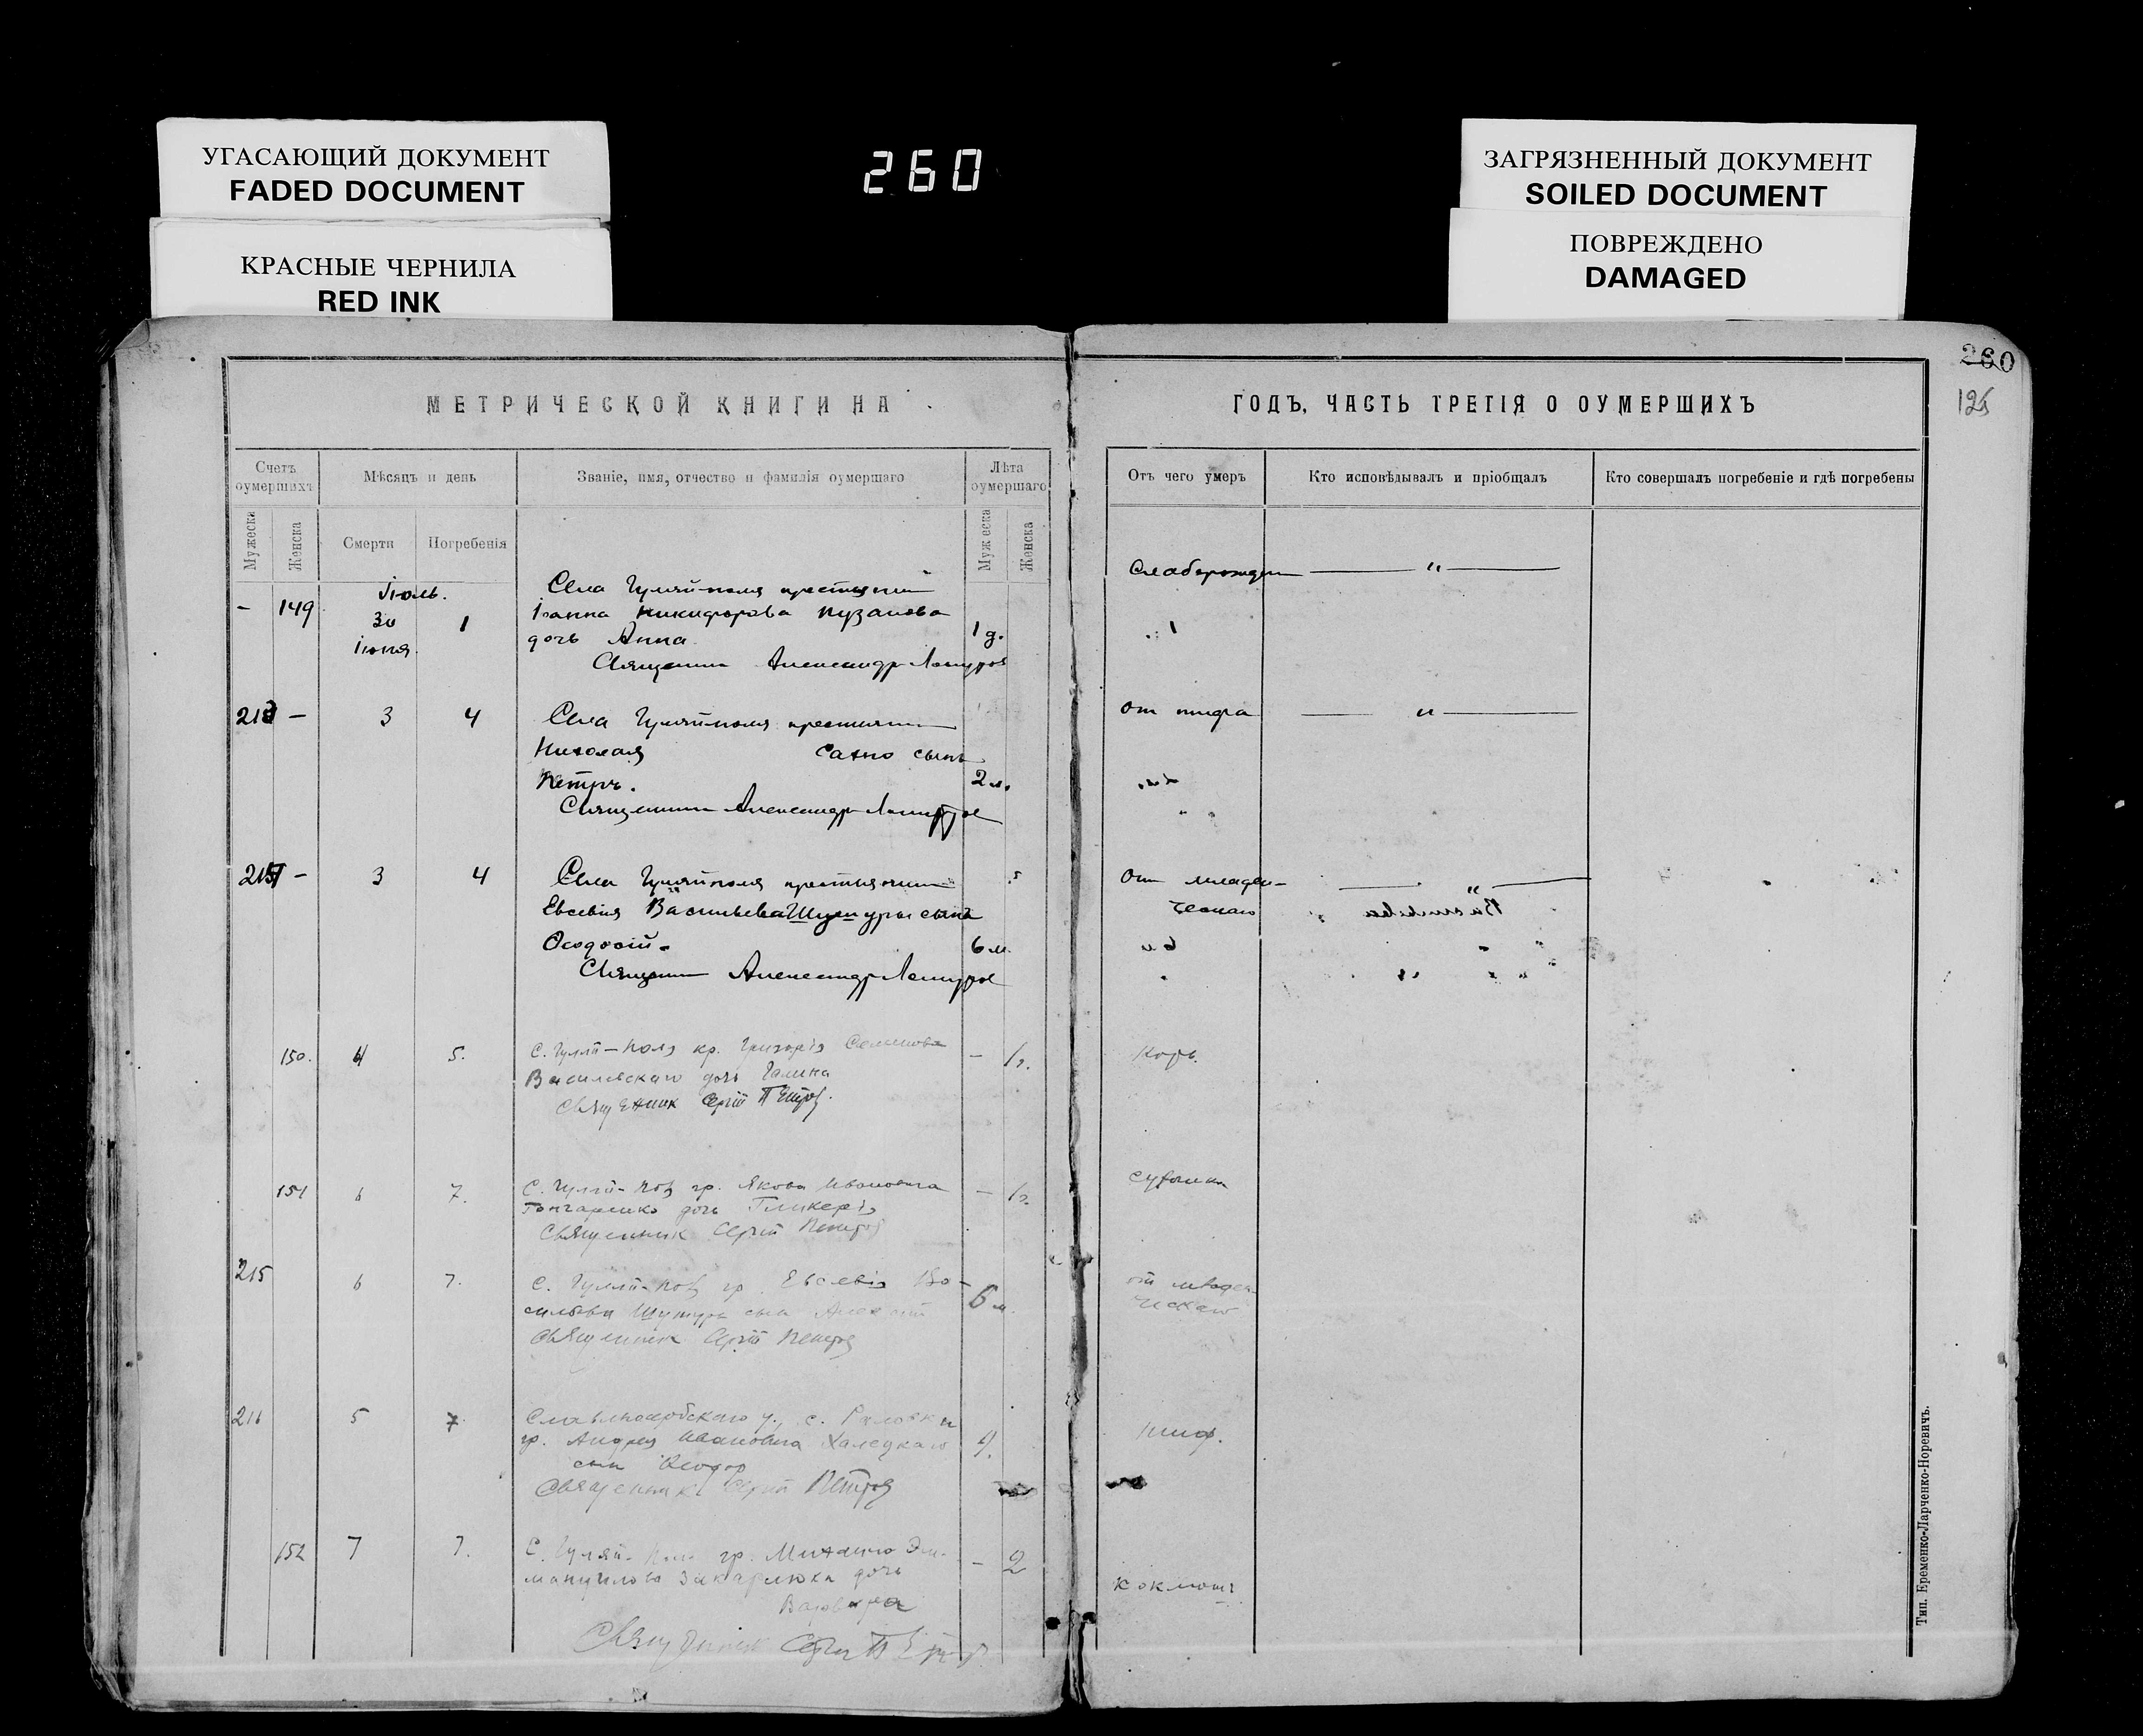 УГАСАЮЩИЙ ДОКУМЕНТ
FADED DOCUMENT
КРАСНЫЕ ЧЕРНИЛА
RED INK
260
ЗАГРЯЗНЕННЫЙ ДОКУМЕНТ
SOILED DOCUMENT
ПОВРЕЖДЕНО
DAMAGED
260
125
МЕТРИЧЕСКОЙ КНИГИ НА
ГОДЪ, ЧАСТЬ ТРЕТІЯ О ОУМЕРШИХЪ
Счетъ оумершихъ
Мѣсяцъ и день
Званіе, имя, отчество и фамилія оумершаго
Лѣта оумершаго
От чего умеръ
Кто исповѣдывалъ и пріобщалъ
Кто совершалъ погребеніе и гдѣ погребены
Мужеска
Женска
Смерти
Погребенія
Мужеска
Женска
Іюль.
- 149 30 1
Іюня.
Села Гуляйполя крестьянин
Іоанна Никифорова Пузанова
дочь Анна 1 д.
Священник Александр
Слаборожден „
3 4
Села Гуляйполя крестьянин
Николая Сахно сынъ
Петръ. 2 м.
Священник Александр
От тифа „
3 4
Села Гуляйполя крестьянин
Евсевія Васильева сына
Феодосій 6 м.
Священник Александр
От младен-
ческаго
150. 4 5.
С. Гуляй-Поля кр. Григорія Семенова - 1 г.
Василевскаго дочь Галина
Священник Сергій Петров.
Корь.
151 6 7.
С. Гуляй-Поля гр. Якова Ивановича - 1 г.
Гончаренко дочь Гликерія
Священник Сергій Петров
215 6 7.
С. Гуляй-Поля гр. Евсевія Ва-
сильева сын Алексій 6 м.
Священник Сергій Петров
от младен-
ческаго
216 5 7
Славяносербскаго у., с.
гр. Андрея Ивановича Халецкаго
сын Феодор
Священник Сергій Петров
тиф.
152 7 7.
С. Гуляй-Поля гр. Михаила Эм-
мануилова дочь - 2
Варвара
Священник Сергій Петров
коклюш
Тип. Еременко-Ларченко-Норевичъ.